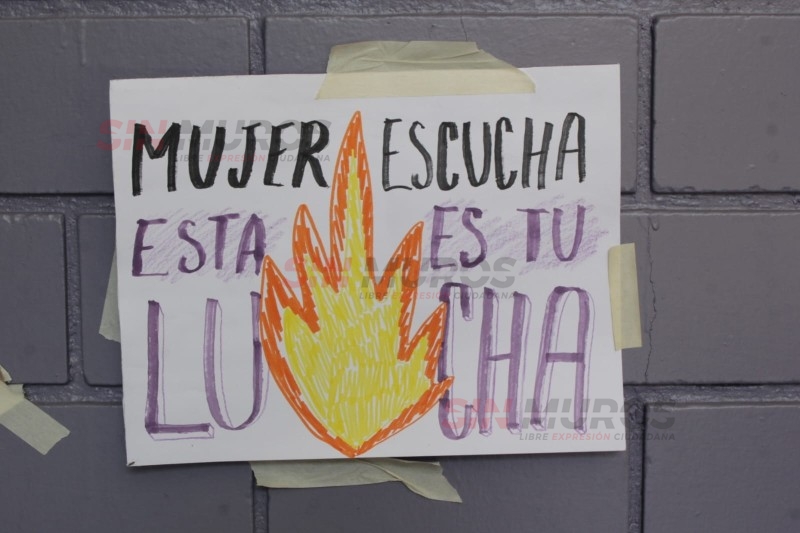 MUJER ESCUCHA
ESTA ES TU
LUCHA
SIN MUROS
LIBRE EXPRESIÓN CIUDADANA
SIN MUROS
LIBRE EXPRESIÓN CIUDADANA
SIN MUROS
LIBRE EXPRESIÓN CIUDADANA